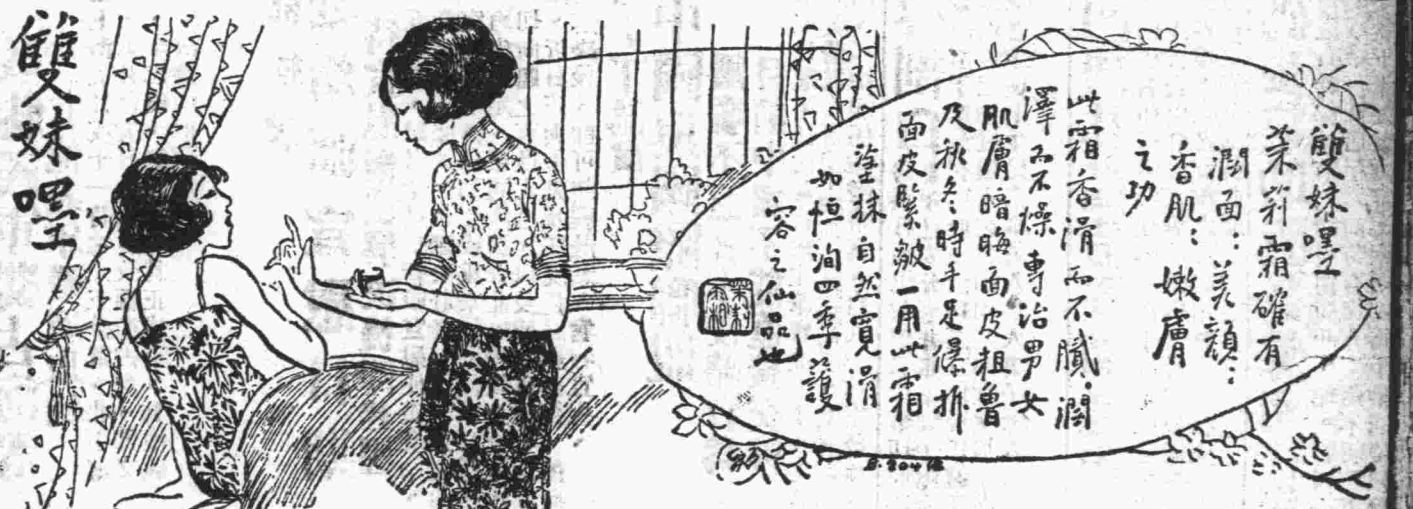 雙妹嚜
雙妹嚜
茉莉霜確有
潤面：美顔：
香肌：嫩膚
之功
此霜香滑而不膩潤
澤而不燥專治男女
肌膚暗晦面皮粗魯
及秋冬時手足爆拆
面皮緊皺一用此霜相
塗抹自然寬滑
如恒洵四季護
容之仙品也